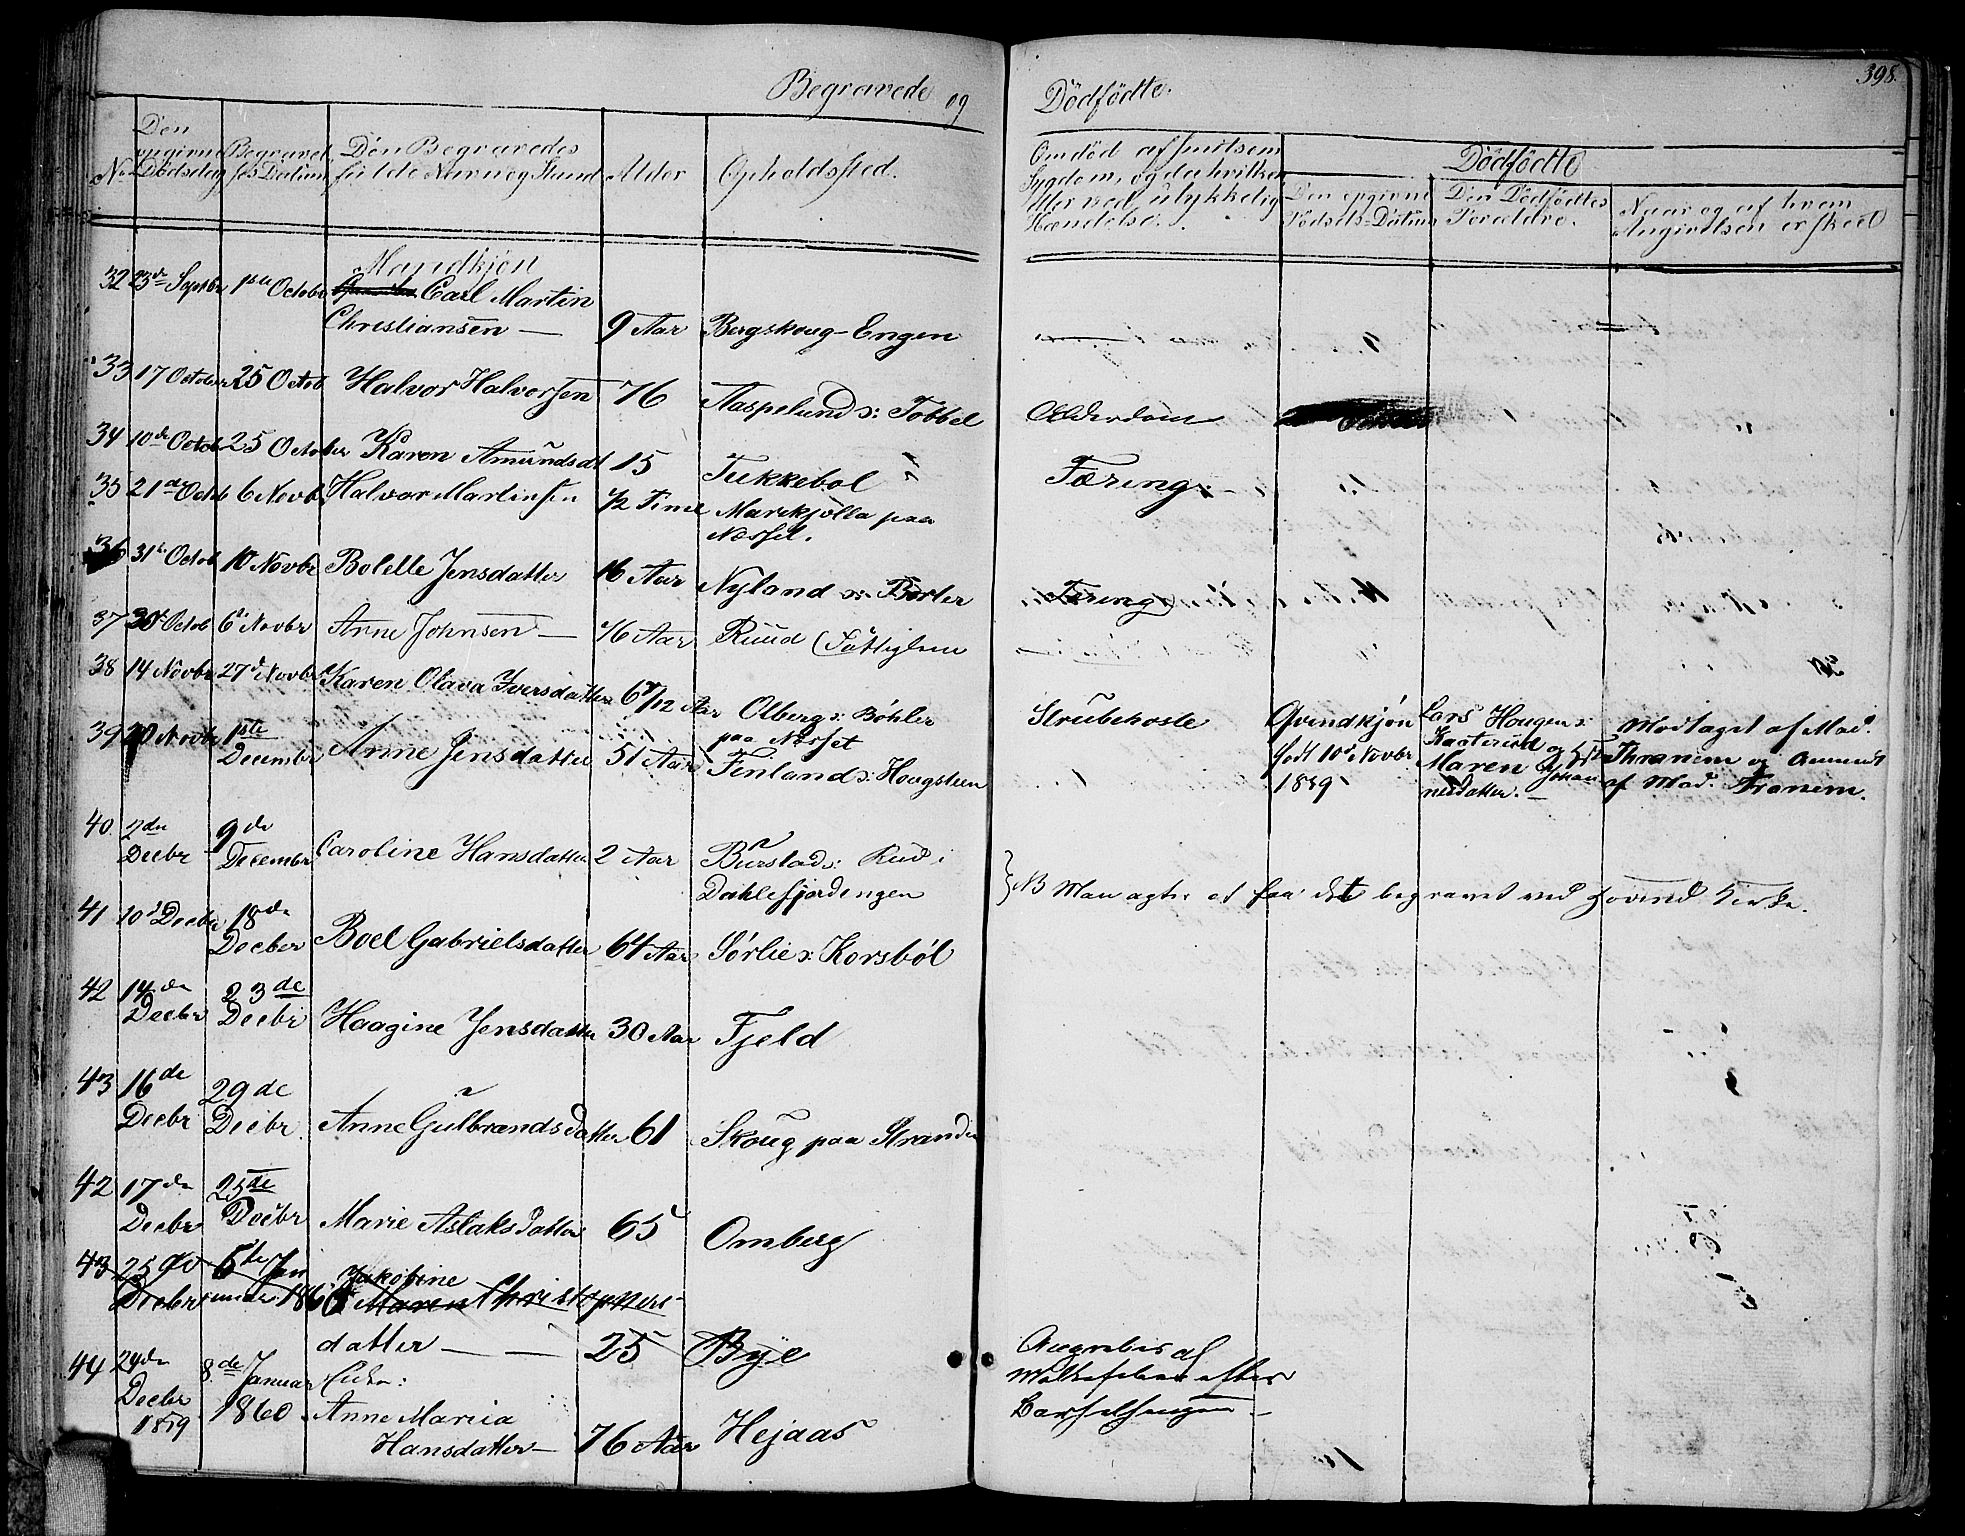 Begravede og
Dödfödte.
398.
No
Den opgivne Dødsdag
Begravelses Datum
Den Begravedes fulde Navn og Stand
Alder
Opholdssted.
Om död af smitsom Sygdom, og da hvilken eller ved ulykkelig Hændelse.
Dödfödte
Den opgivne Födsels-Datum
Den Dödfödtes Forældre.
Naar og af hvem Angivelsen er skeed
Mandkjön
32 23de Septbr 1ste October Carl Martin
Christiansen — 9 Aar Bergskoug-Engen
33 17 October 25 Octob Halvor Halvorsen 76 Aaspelund v: Tobbel Alderdom
34 10de Octob 25 October Karen Amundsdt 15 Tukkebol Tæring
35 21de Octb 6 Novb Halvor Martinsen 1/2 Time Marekjølla paa
Næsset.
36 31te Octob 10 Novbr Bolette Jensdatter 16 Aar Nyland v: Börler Tæring
37 30te Octob 6 Novbr Anne Johnsen — 76 Aar Ruud (Fattiglem
38 14 Novbr 27de Novbr Karen Olava Iversdatter 6 7/12 Aar Olberg v: Böhler
paa Næsset
Strubehoste
39 20 Novbr 1ste
December Anne Jensdatter 51 Aar Finland v: Hougsteen
Qvindkjön
födt 10de Novbr
1859
Lars Hougen v:
Kaaterud og
Maren Johan-
nesdatter. —
Modtaget af Mad.
Thranem og Anmeldt
af Mad. Tranem.
40. 2den
Decbr 9de
Decembr Caroline Hansdatter 2 Aar Burstad v: Rud i
Dahlefjerdengen
NB Man agter at faa det begravet ved Hovind Kirke.
41 10de Decbr 18de
Decber Boel Gabrielsdatter 64 Aar Sörlie v: Korsböl
42 14de
Decbr 23de
Decbr Haagine Jensdatter 30 Aar Fjeld
43 16de
Decbr 29de
Decbr. Anne Gulbrandsdatter 61 Skoug paa Stranden
42 17de
Decbr 25de
Decbr Marie Aslaksdatter 65 Omberg
43 25de
Decbr 5te Jan
uar 1860 Jakobine
Maren Christophers-
datter — — 25 Bye
Angrebes af
Melkefeber efter
Barselsengen. —
44 24de
Decbr
1859 8de Januar
1860 Enke:
Anne Mariea
Hansdatter — 76 Aar Hejaas